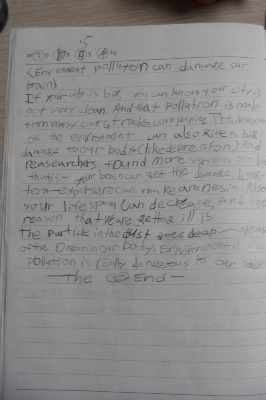 15
<Enviroment pollution can damage our
brain>
If your city is big, you can know your city is
not very clean. And that pollution is made
from many cars, trucks, companies. The
of the enviroment can also give a big
damage to our body (like depression) And
reasearchers found more serious
thatis - your brain can get the damage. Long
term exposure can make amnesia. Also
your lifespan can decrease. And the
reason that you are getting ill is
The particle in the dust goes deep
of the organ in our body. Environmental
pollution is really dangerous to our
The End